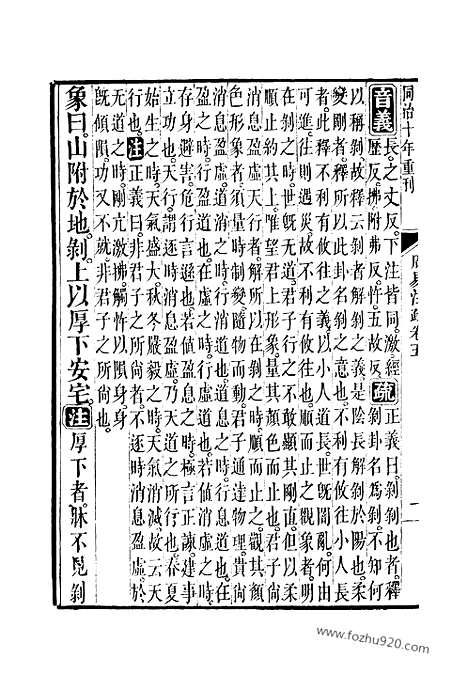 同治十年重刊
周易注疏卷五
一
音義長之丈反。下注皆同。激經
歷反。拂附弗反。忤五故反。疏正義曰。剝剝也者。釋
剝卦名爲剝。不知何
以稱剝。故釋云剝者解剝之義。是陰長解剝於陽也。柔
變剛者。釋所以此卦名剝之意也。不利有攸往小人長
者。此釋不利有攸往之義。以小人道長。世旣闇亂。何由
可進。往則遇災。故不利有攸往也。順而止之觀象者。明
在剝之時。世旣无道。君子行之。不敢顯其剛直。但以柔
順止約其上。唯望君上形象。量其顏色而止也。君子尚
消息盈虛天行者。解所以在剝之時。順而止之。觀其顏
色形象者。須量時制變。隨物而動。君子通達物理。貴尚
消息盈虛。道消之時。行消道也。道息之時。行息道也。在
盈之時。行盈道也。在虛之時。行虛道也。若値消虛之時。
存身避害。危行言遜也。若値盈息之時。極言正諫。建事
立功也。天行。謂逐時消息盈虛。乃天道之所行也。春夏
始生之時。天氣盛大。秋冬嚴殺之時。天氣消滅。故云天
行也。注正義曰。非君子之所尚者。不逐時消息盈虛。於
无道之時。剛亢激拂。觸忤以隕身。身
旣傾隕。功又不就。非君子之所尚也。
象曰。山附於地。剝。上以厚下安宅。注厚下者。牀不見剝
www.fozhu920.com